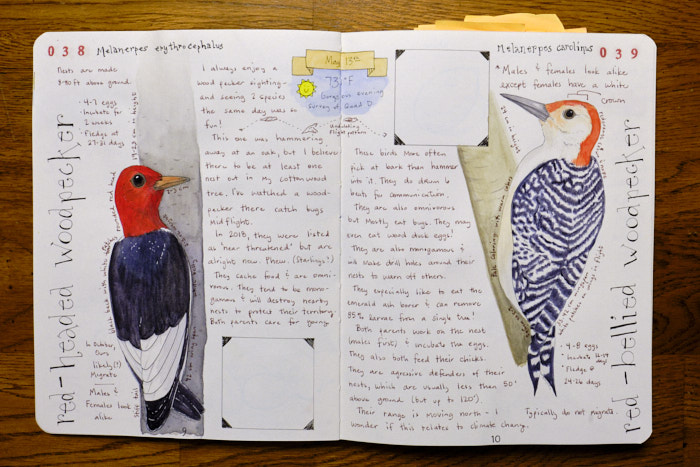 038 Melanerpes erythrocephalus
Nests are made
8-80 ft above ground.
• 4-7 eggs
• Incubate for
2 weeks
• Fledge at
27-31 days
red-headed woodpecker
In October,
Ours
likely(?)
Migrate
Males &
Females look
alike
Stiff tail
I always enjoy a
woodpecker sighting -
and seeing 2 species
the same day was so
fun!
This one was hammering
away at an oak, but I believe
there to be at least one
nest out in my cottonwood
tree. I've watched a wood-
pecker there catch bugs
midflight.
In 2018, they were listed
as 'near threatened' but are
alright now. Phew. (Starlings?)
They cache food & are omni-
vorous. They tend to be mono-
gamous & will destroy nearby
nests to protect their territory.
Both parents care for young.
9
May 13th
73 °F
Gorgeous evening
Undulating
flight pattern
Melanerpes carolinus 039
* Males & females look alike
except females have a white
crown
These birds more often
pick at bark than hammer
into it. They do drum 6
beats for communication.
They are also omnivorous
but mostly eat bugs. They may
even eat wood duck eggs!
They are also monogamous &
will make drill holes around their
nests to warn off others.
They especially like to eat the
emerald ash borer & can remove
85% larvae from a single tree!
Both parents work on the nest
(males first) & incubate the eggs.
They also both feed their chicks.
They are agressive defenders of their
nests, which are usually less than 50'
above ground (but up to 120').
Their range is moving north - I
wonder if this relates to climate change.
10
red-bellied woodpecker
• 4-8 eggs
• Incubate 12-14
days
• Fledge @
24-26 days
Typically do not migrate.